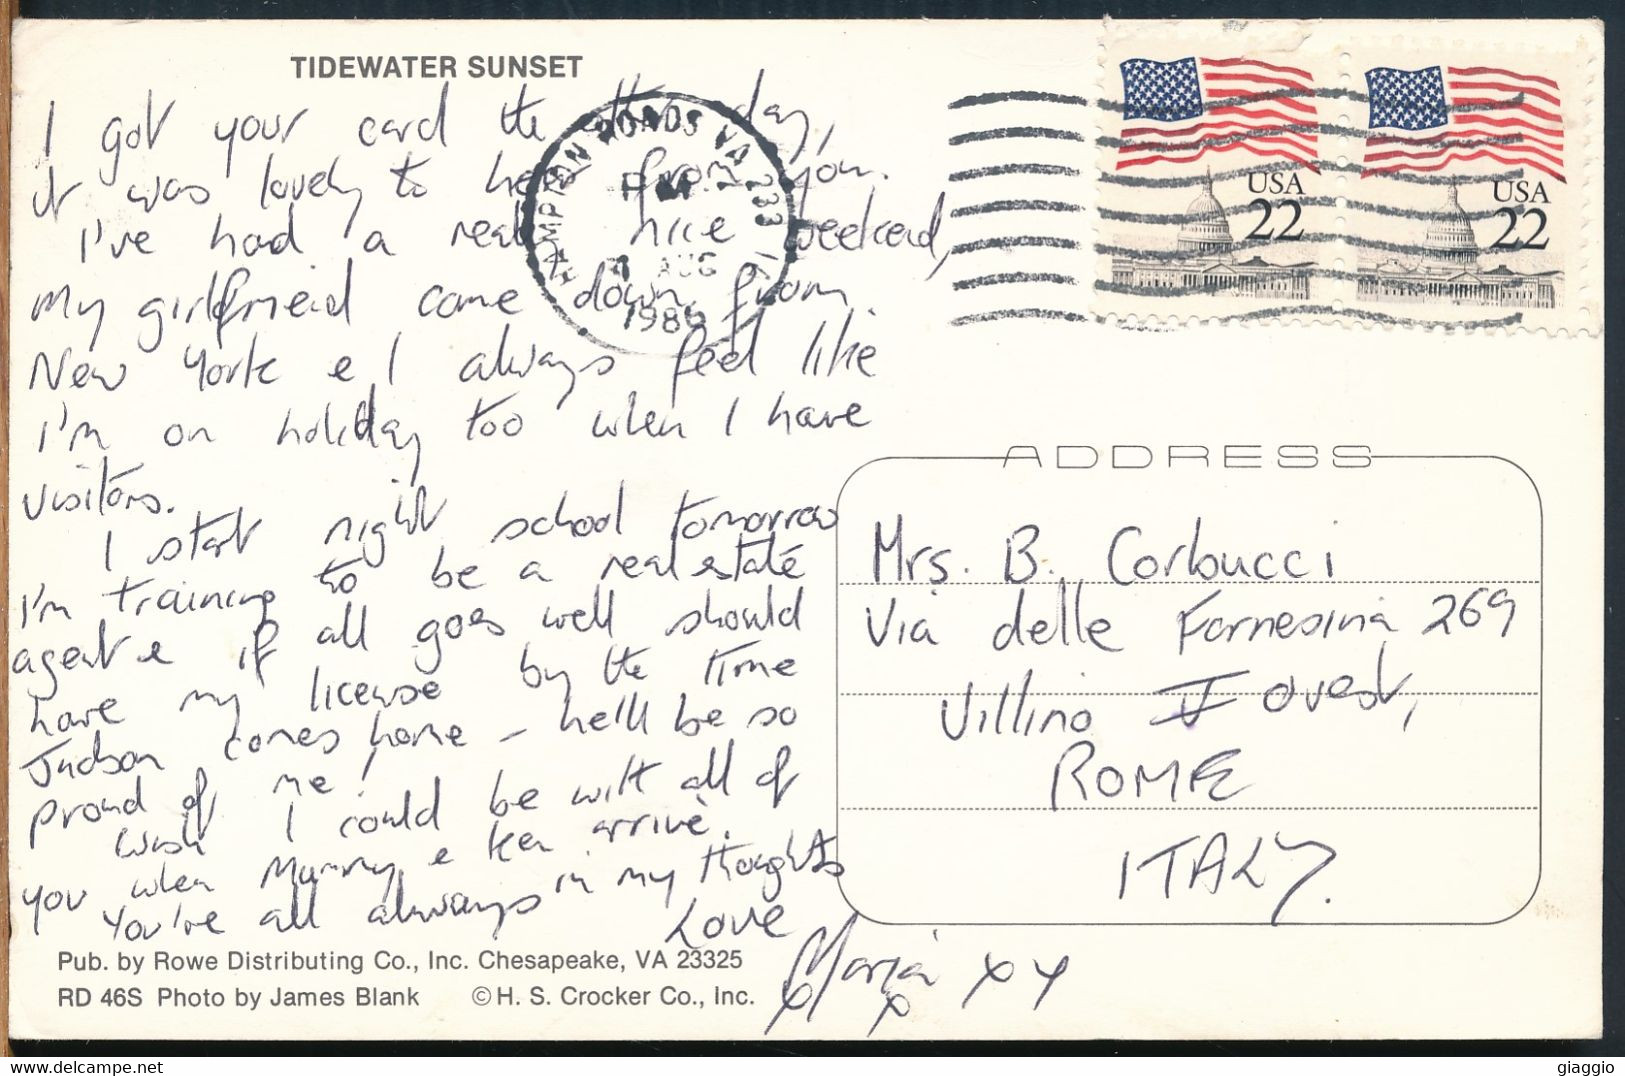 TIDEWATER SUNSET
I got your card the other day,
it was lovely to hear from you.
I've had a real nice weekend,
My girlfriend came down from
New York e I always feel like
I'm on holiday too when I have
visitors.
I start night school tomorrow
I'm training to be a real estate
agent e if all goes well should
have my license by the time
Judson comes home - he'll be so
proud of me!
Wish I could be with all of
you when Mummy e Ken arrive.
You're all always in my thoughts
Love
Maria x x
x x
Pub. by Rowe Distributing Co., Inc. Chesapeake, VA 23325
RD 46S Photo by James Blank © H. S. Crocker Co., Inc.
HAMPTON ROADS VA 233
PM
AUG
1986
USA
22
USA
22
ADDRESS
Mrs. B. Corbucci
Via delle Farnesina 269
Villino V Ovest,
ROME
ITALY.
giaggio